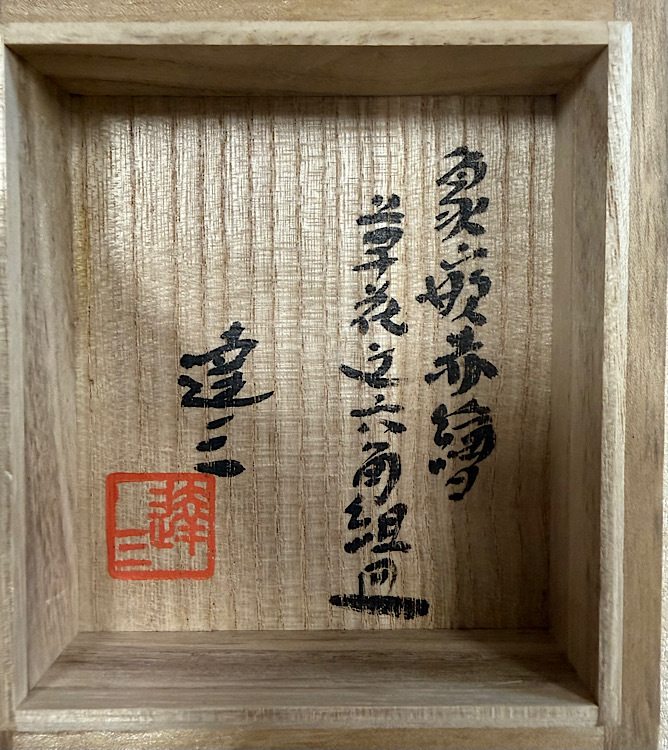 象嵌赤繪
草花文六角組皿
達三
達三